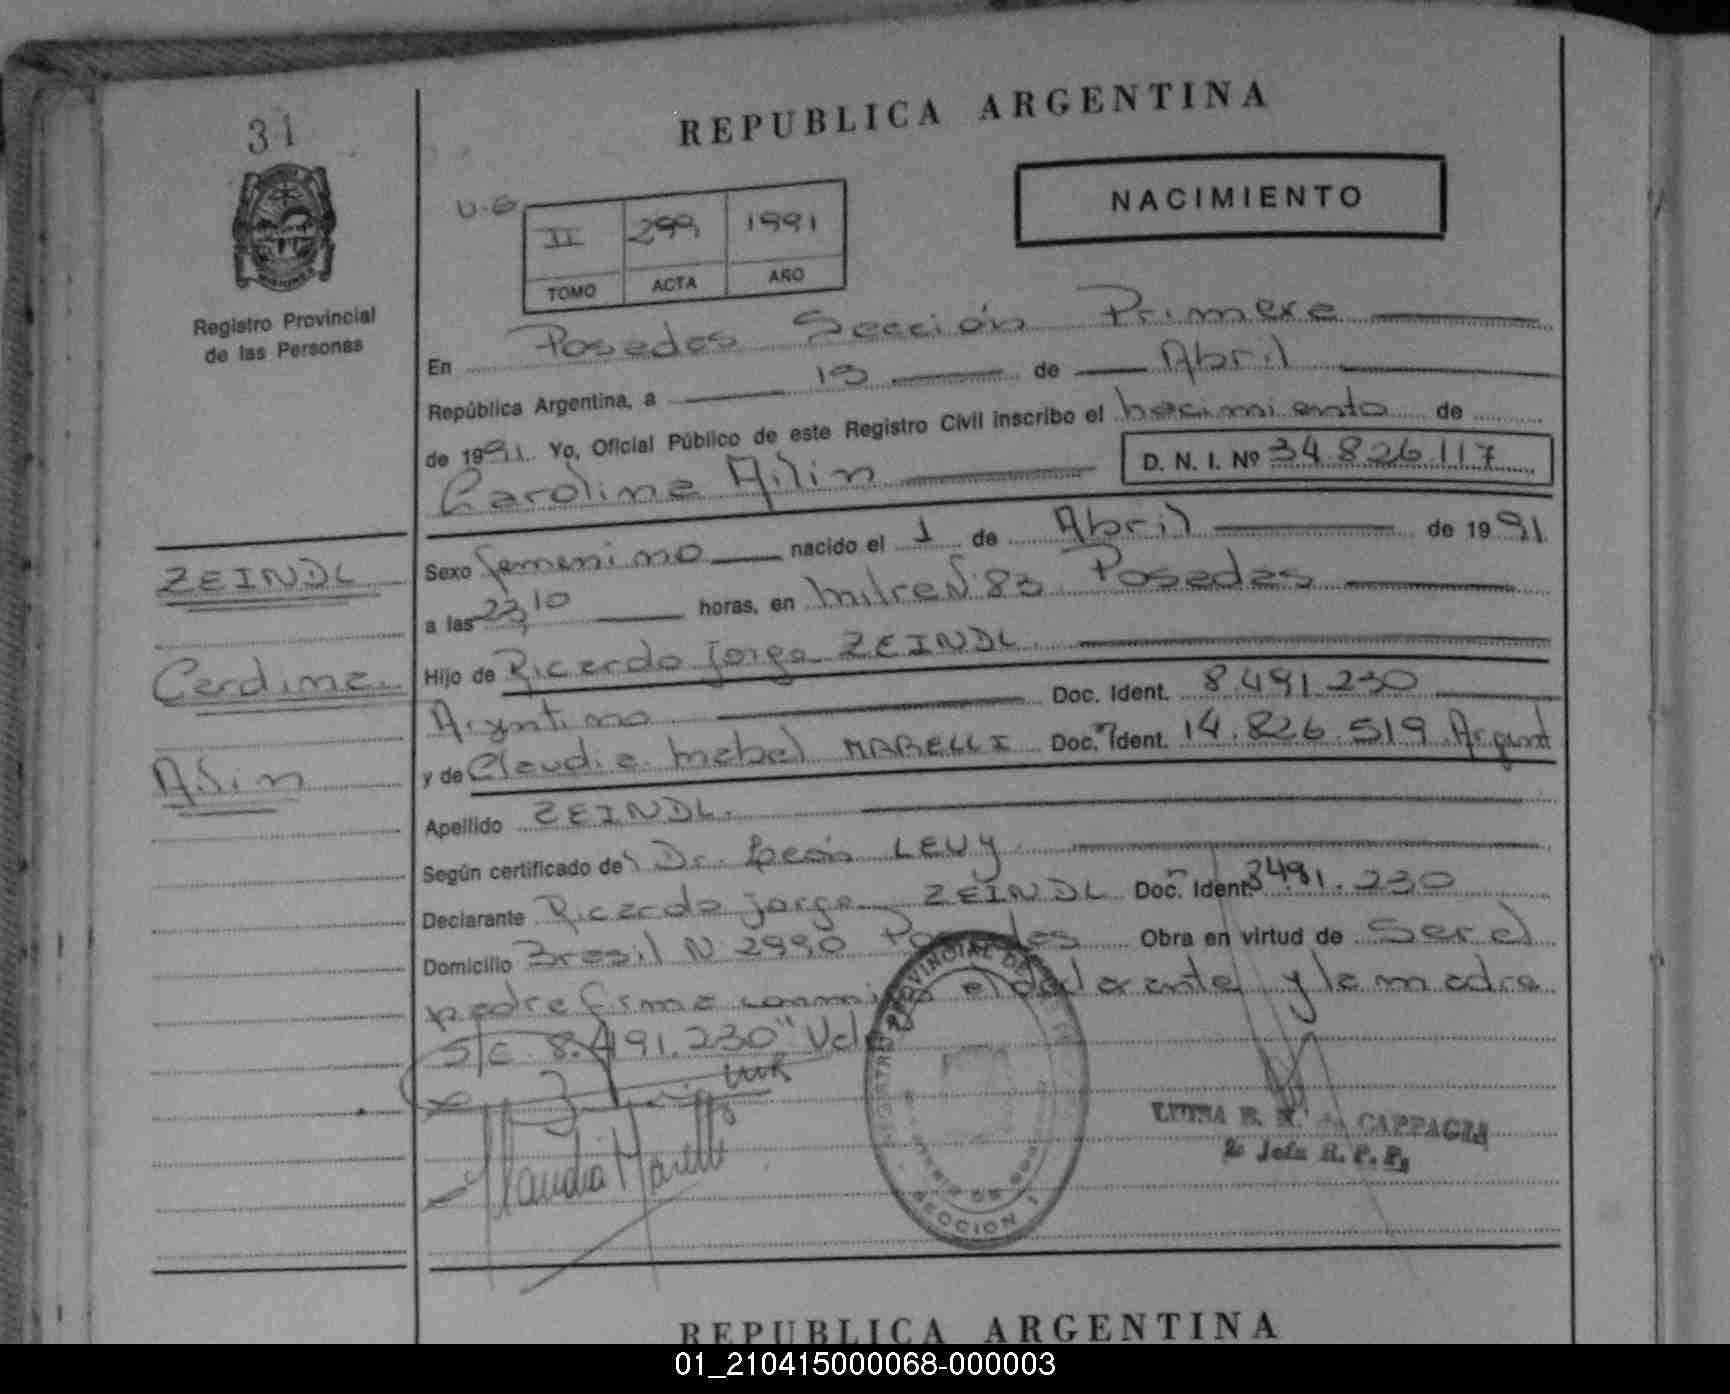 31
REPUBLICA ARGENTINA
NACIMIENTO
U-6
II 299 1991
TOMO ACTA AÑO
Registro Provincial
de las Personas
En Posadas Sección Primera
República Argentina, a 15 de Abril
de 1991. Yo, Oficial Público de este Registro Civil inscribo el nacimiento de
Carolina Ailin D. N. I. Nº 34.826.117
ZEINDL
Carolina
Ailin
Sexo femenino nacido el 1 de Abril de 1991.
a las 23,10 horas, en Mitre Nº 83 Posadas
Hijo de Ricardo Jorge ZEINDL
Argentino Doc. Ident. 8.491.230
y de Claudia Mabel MARELLI Doc. Ident. 14.826.519 Argent
Apellido ZEINDL.
Según certificado de Dr. León LEVY
Declarante Ricardo Jorge ZEINDL Doc. Ident. 8491.230
Domicilio Brasil N 2990 Posadas Obra en virtud de Ser el
padre firma conmigo el declarante y la madre
S/E 8.491.230" Vale
Claudia Marelli
REGISTRO PROVINCIAL DE LAS
SECCION 1
LUISA B. N. de CAPPAGLI
2o Jefa R. P. P.
REPUBLICA ARGENTINA
01_210415000068-000003